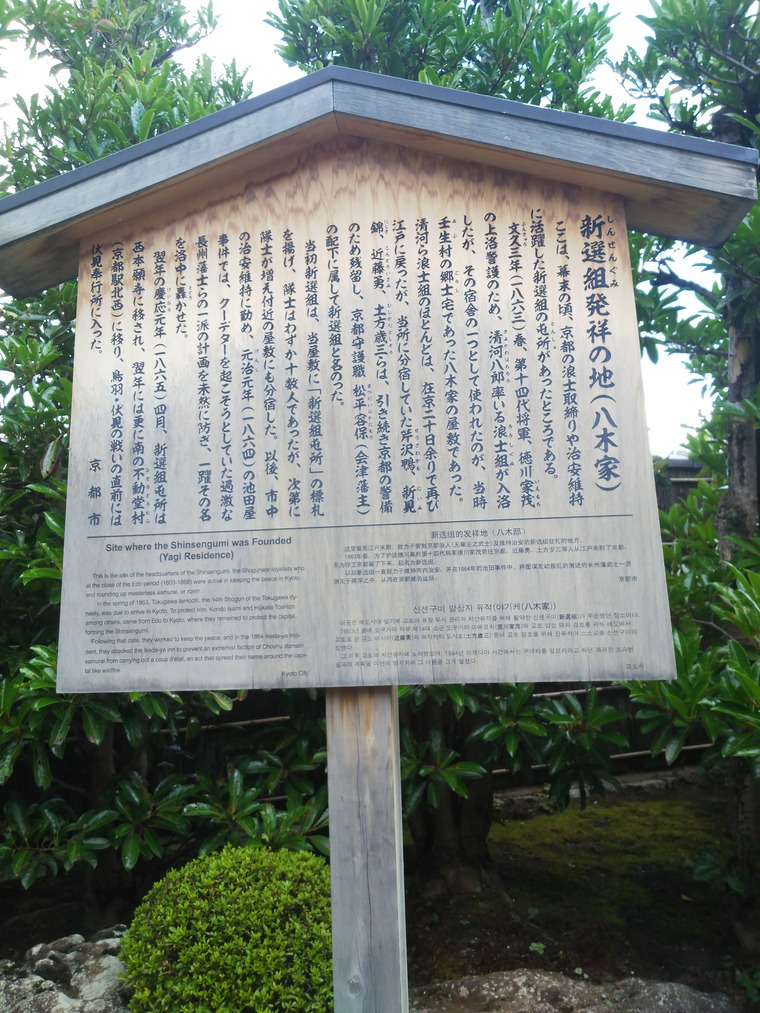 新選組発祥の地(八木家)
しんせんぐみ
ここは、幕末の頃、京都の浪士取締りや治安維持
に活躍した新選組の屯所があったところである。
文久三年(一八六三)春、第十四代将軍、徳川家茂
の上洛警護のため、清河八郎率いる浪士組が入洛
したが、その宿舎の一つとして使われたのが、当時
壬生村の郷士宅であった八木家の屋敷であった。
清河ら浪士組のほとんどは、在京二十日余りで再び
江戸に戻ったが、当所に分宿していた芹沢鴨、新見
錦、近藤勇、土方歳三らは、引き続き京都の警備
のため残留し、京都守護職 松平容保(会津藩主)
の配下に属して新選組と名のった。
当初新選組は、当屋敷に「新選組屯所」の標札
を揚げ、隊士はわずか十数人であったが、次第に
隊士が増え付近の屋敷にも分宿した。以後、市中
の治安維持に勤め、元治元年(一八六四)の池田屋
事件では、クーデターを起こそうとしていた過激な
長州藩士らの一派の計画を未然に防ぎ、一躍その名
を洛中に轟かせた。
翌年の慶応元年(一八六五)四月、新選組屯所は
西本願寺に移され、翌年には更に南の不動堂村
(京都駅北西)に移り、鳥羽・伏見の戦いの直前には
伏見奉行所に入った。
京都市
Site where the Shinsengumi was Founded
(Yagi Residence)
This is the site of the headquarters of the Shinsengumi, the Shogunate loyalists who
at the close of the Edo period (1603-1868) were active in keeping the peace in Kyoto
and rounding up masterless samurai, or ronin.
In the spring of 1863, Tokugawa Iemochi, the 14th Shogun of the Tokugawa dy-
nasty, was due to arrive in Kyoto. To protect him, Kondo Isami and Hijikata Toshizo,
among others, came from Edo to Kyoto, where they remained to protect the capital,
forming the Shinsengumi.
Following that date, they worked to keep the peace, and in the 1864 Ikeda-ya inci-
dent, they attacked the Ikeda-ya inn to prevent an extremist faction of Choshu domain
samurai from carrying out a coup d'etat, an act that spread their name around the capi-
tal like wildfire.
Kyoto City
新选组的发祥地(八木邸)
京都市
신센구미 발상지 유적(야기케(八木家))
교토시